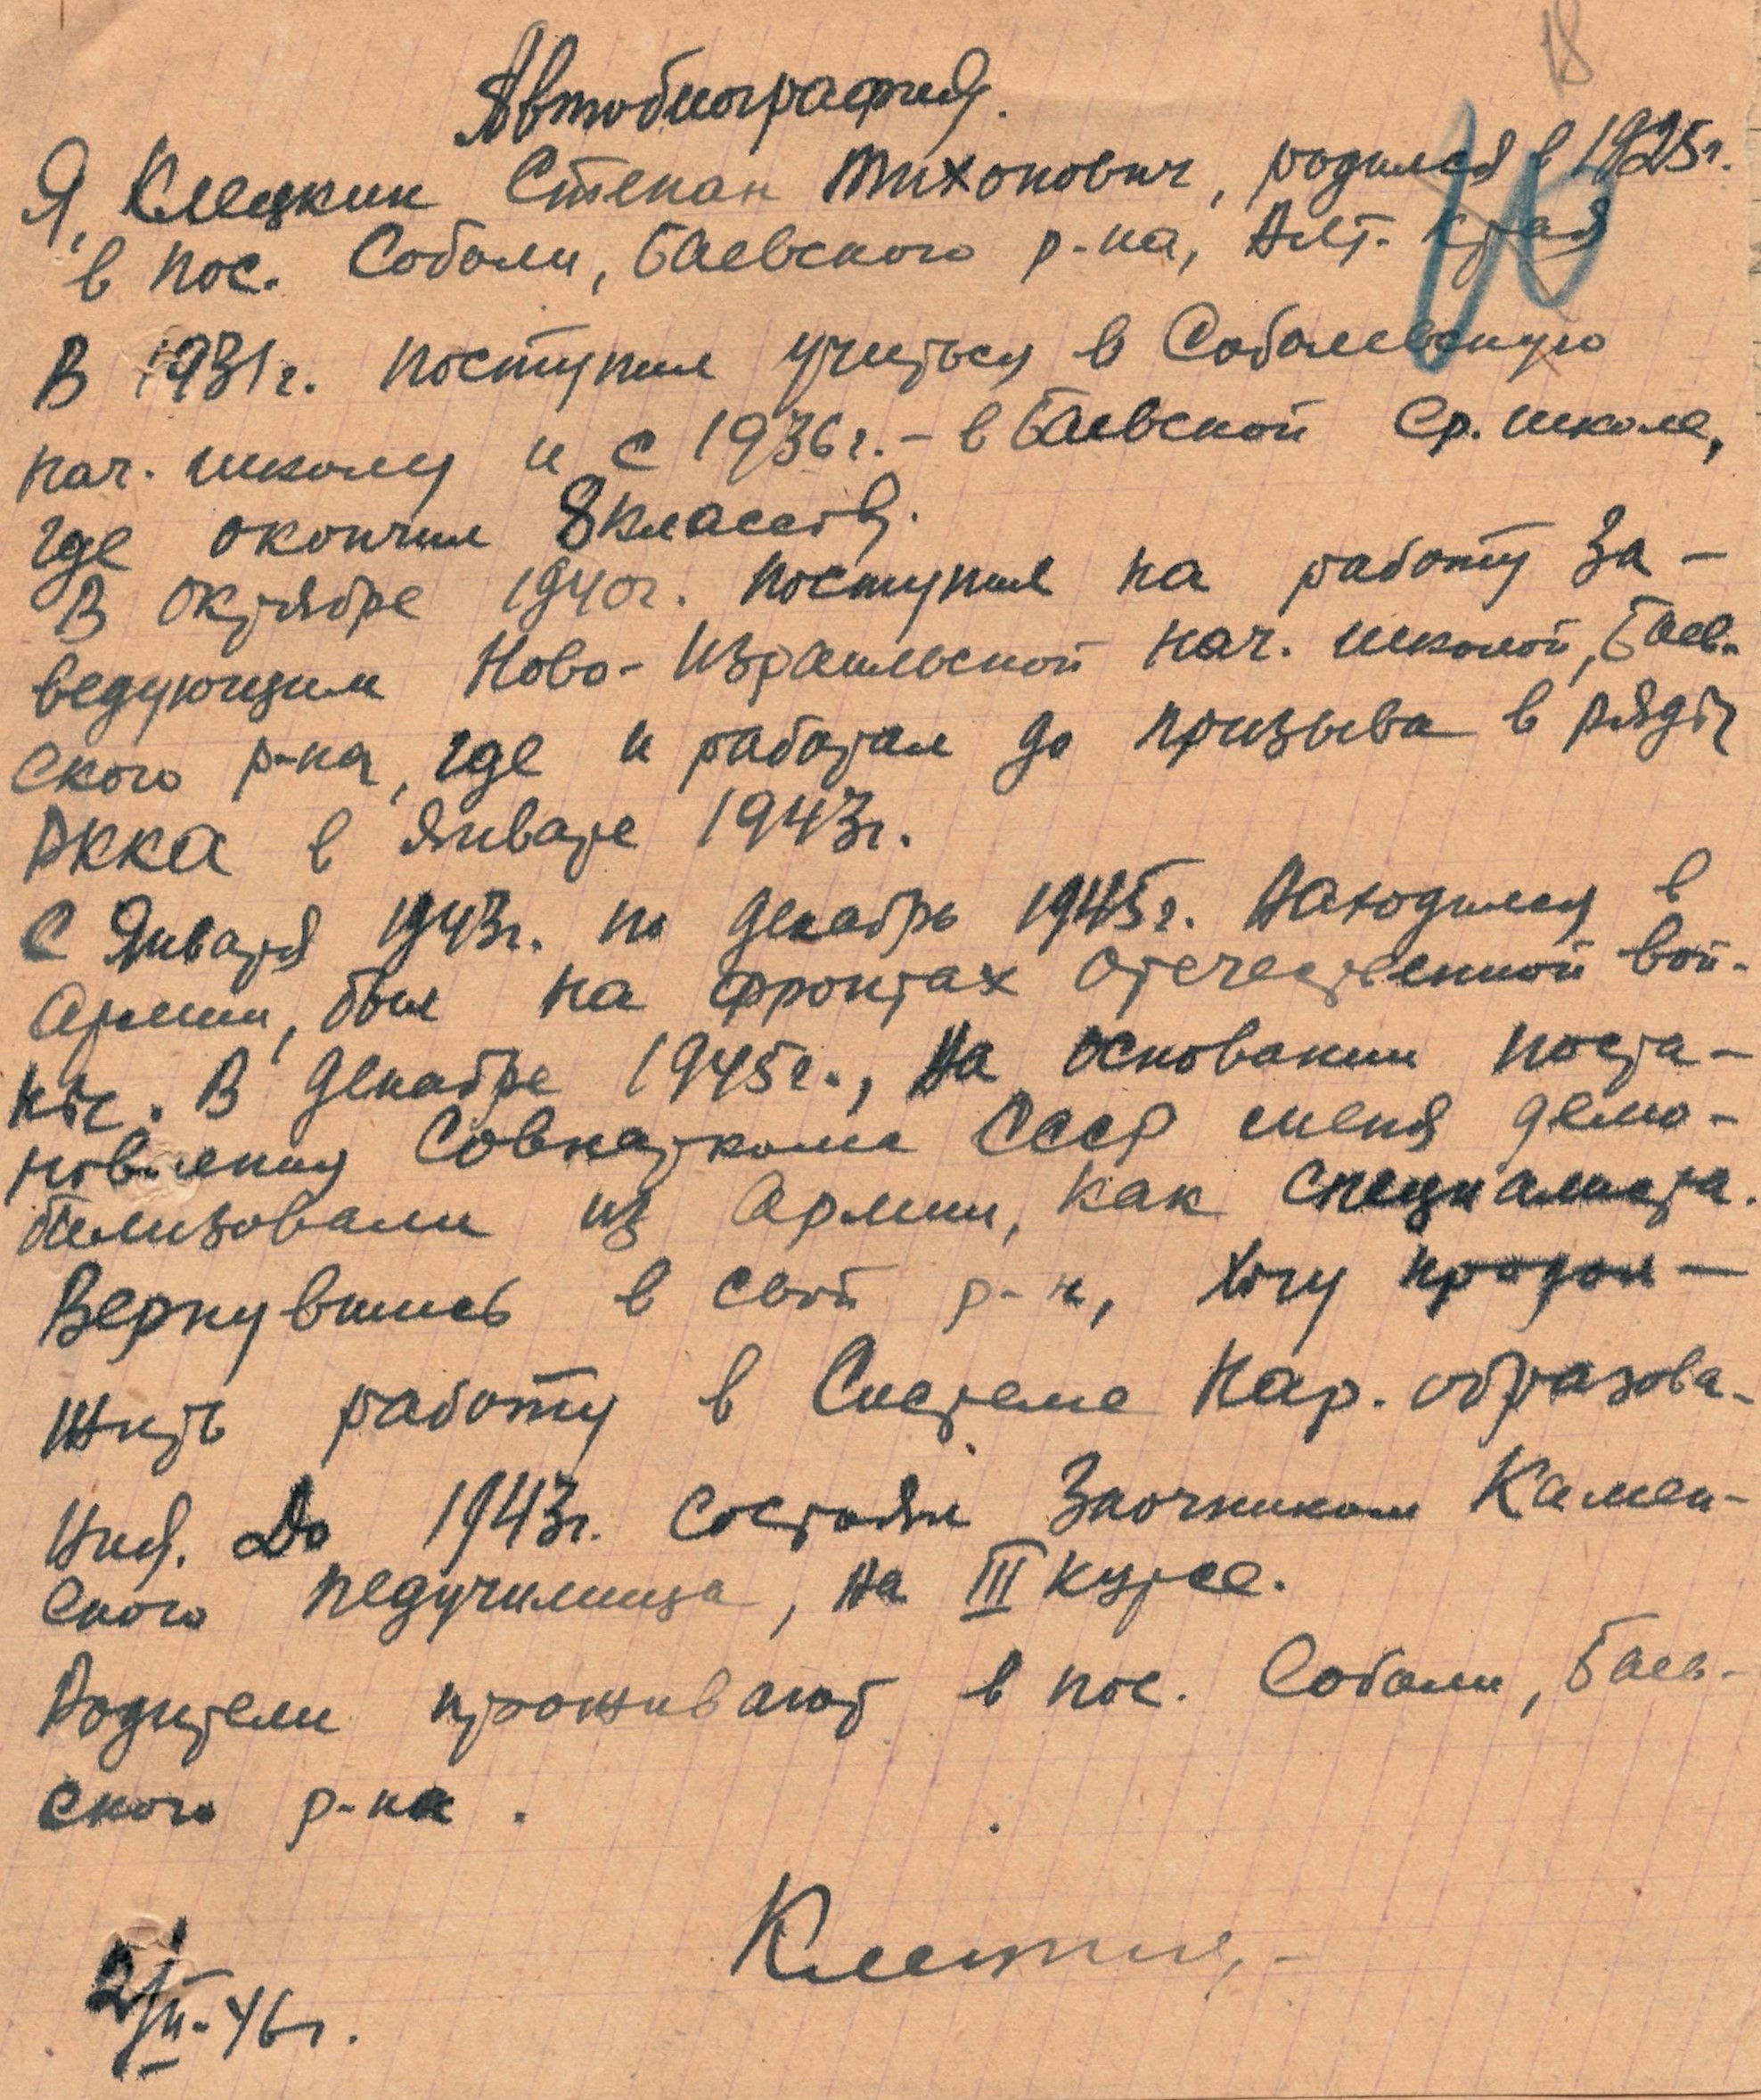 18
Автобиография.
Я, Клецкин Степан Тихонович, родился в 1925г.
в пос. Соболи, Баевского р-на, Алт. Края
В 1931г. поступил учиться в Соболевскую
нач. школу и с 1936г. – в Баевской ср. школе,
где окончил 8 классов.
В октябре 1940г. поступил на работу за-
ведующим Ново-Израильской нач. школой, Баев-
ского р-на, где и работал до призыва в ряды
РККА в январе 1943г.
С января 1943г. по декабрь 1945г. находился в
армии, был на фронтах отечественной вой-
ны. В декабре 1945г., на основании поста-
новления Совнаркома СССР меня демо-
билизовали из армии, как специалиста.
Вернувшись в свой р-н, хочу продол-
жить работу в системе нар. образова-
ния. До 1943г. состоял заочником Камен-
ского педучилища, на III курсе.
Родители проживают в пос. Соболи, Баев-
ского р-на.
46г.